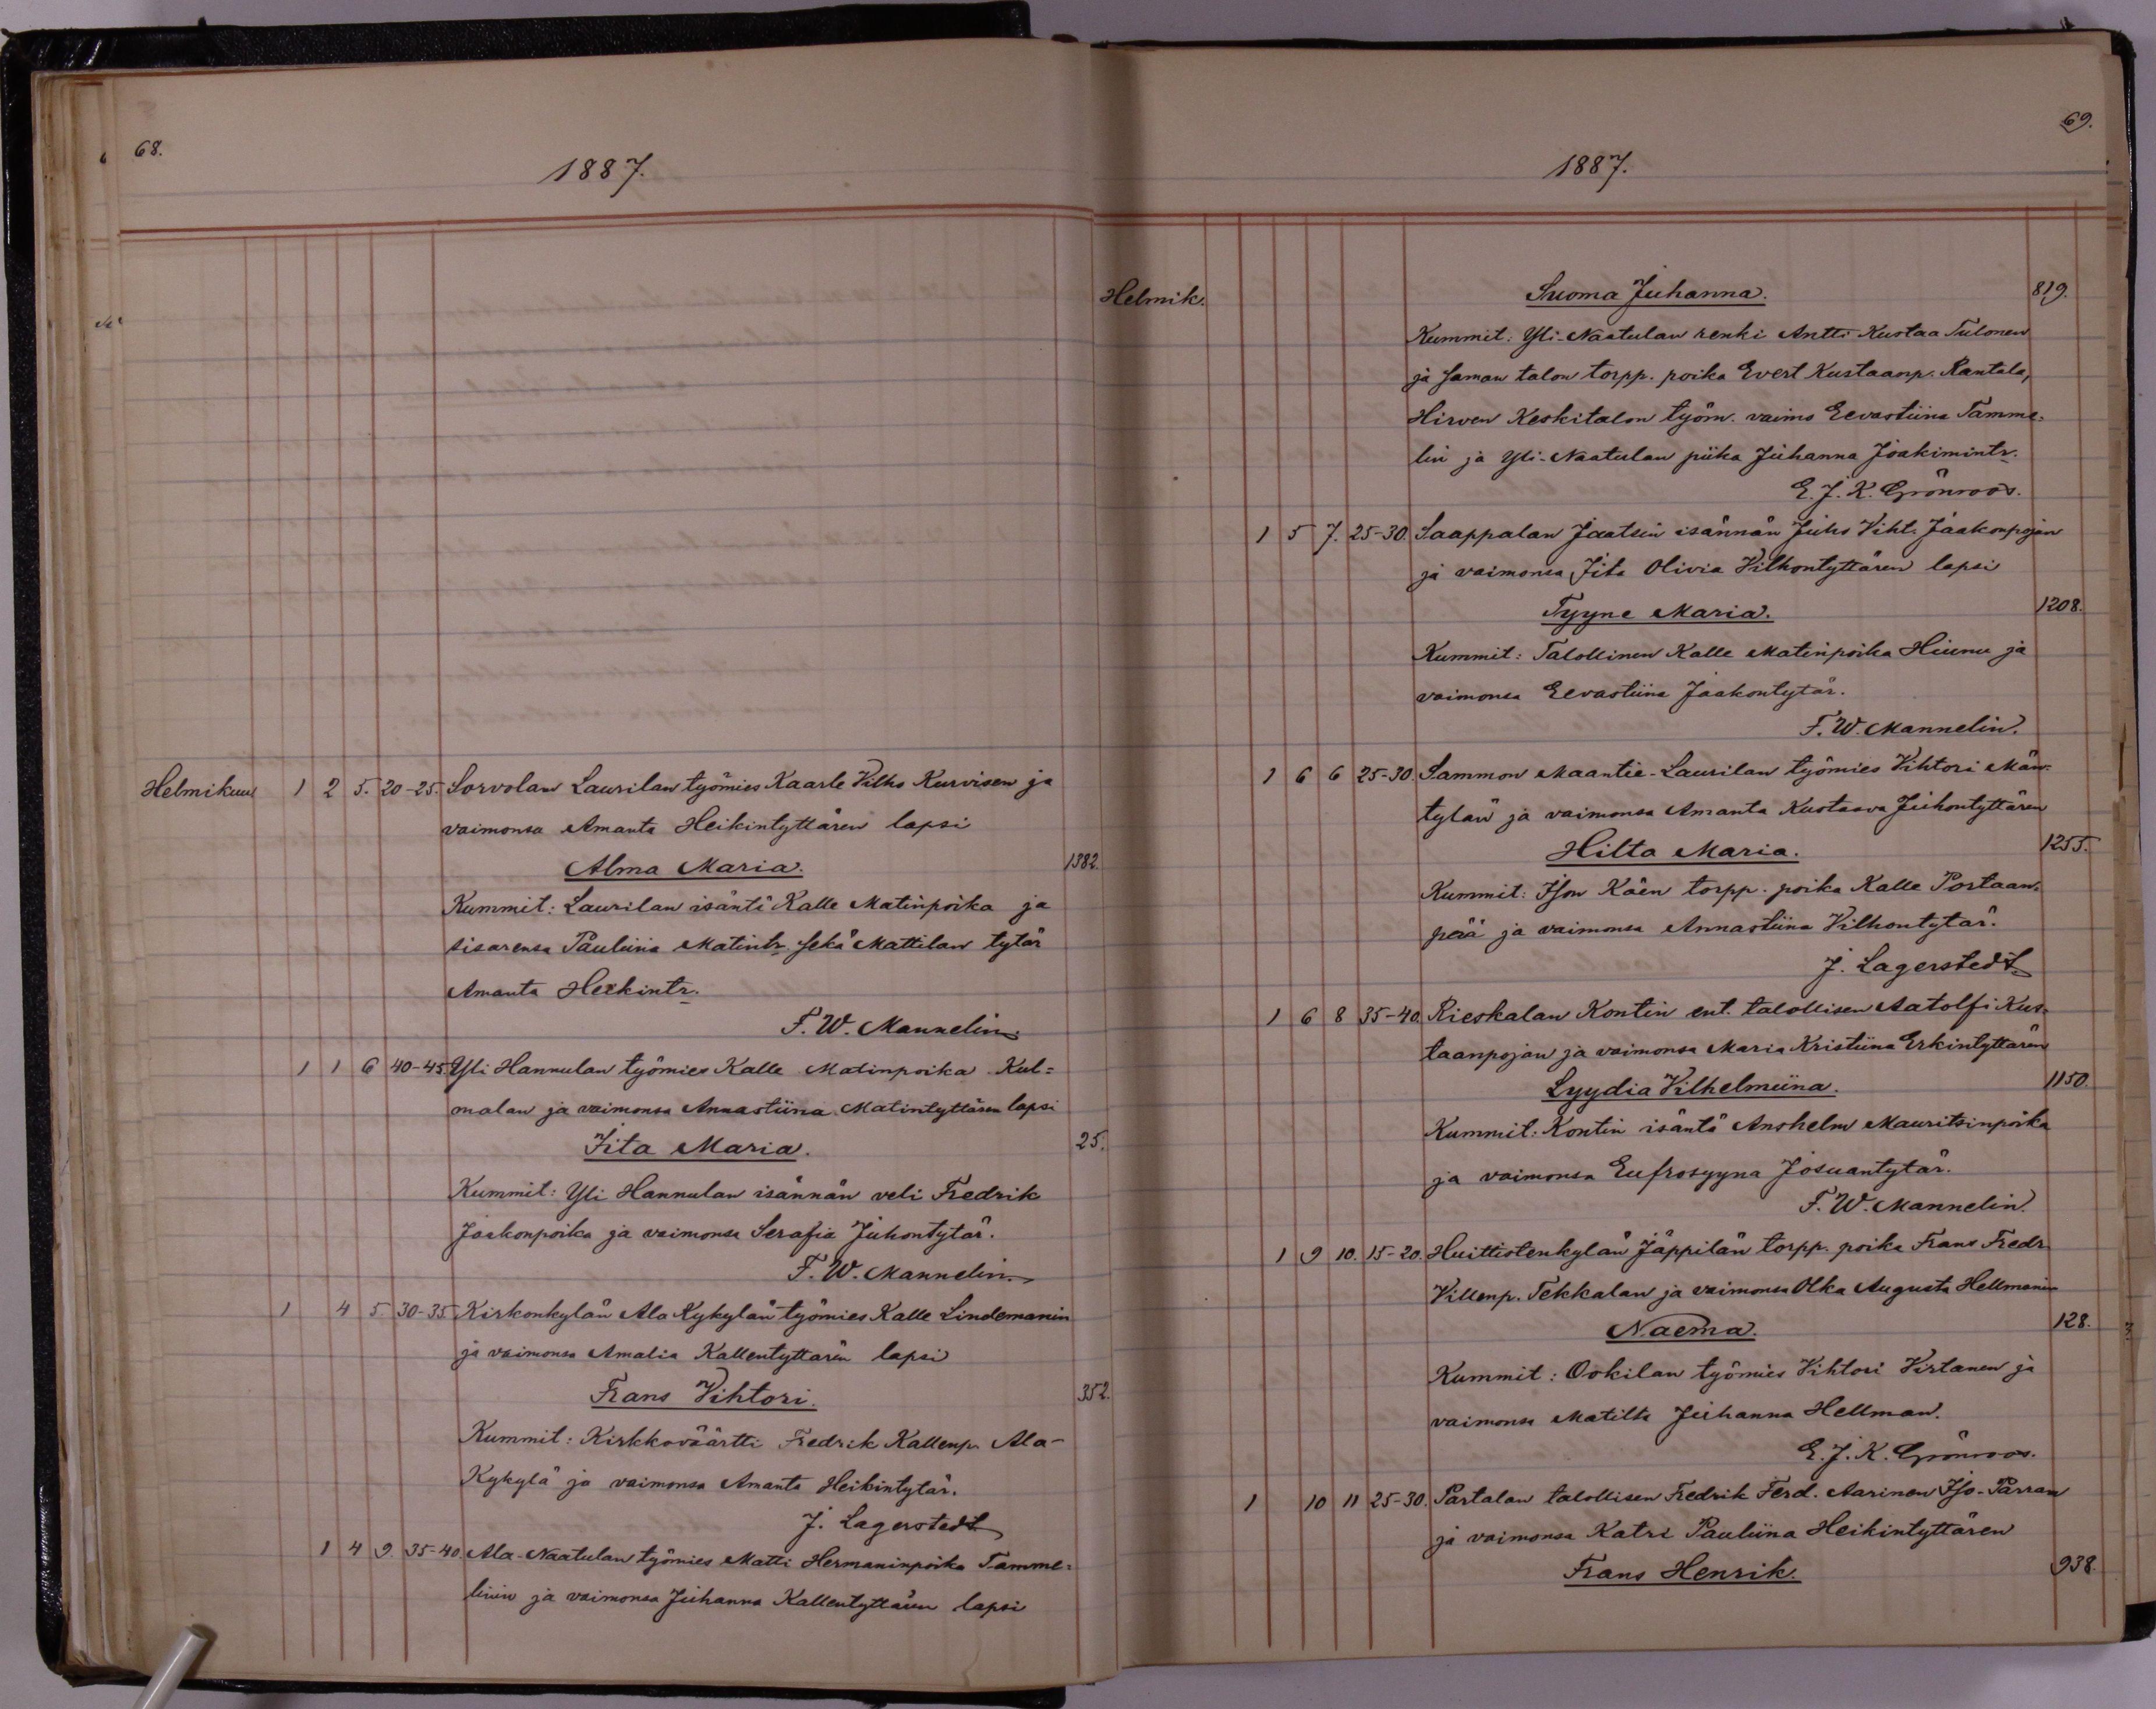 68.
1887.
Helmikuu 1 2 5. 20-25. Sorvolan Laurilan työmies Kaarle Vilho Kurvisen ja
vaimonsa Amanta Heikintyttären lapsi
Alma Maria. 1382.
Kummit: Laurilan isäntä Kalle Matinpoika ja
sisarensa Pauliina Matintr. sekä Mattilan tytär
Amanta Heikintr.
F. W. Mannelin.
1 1 6 40-45. Yli Hannulan työmies Kalle Matinpoika Kul=
malan ja vaimonsa Annastiina Matintyttären lapsi
Iita Maria. 25.
Kummit: Yli Hannulan isännän veli Fredrik
Jaakonpoika ja vaimonsa Serafia Juhontytär.
F. W. Mannelin.
1 4 5. 30-35. Kirkonkylän Ala Kykylän työmies Kalle Lindemanin
ja vaimonsa Amalia Kallentyttären lapsi
Frans Vihtori. 352.
Kummit: Kirkkoväärtti Fredrik Kallenp. Ala-
Kykylä ja vaimonsa Amanta Heikintytär.
J. Lagerstedt
1 4 9. 35-40. Ala-Naatulan työmies Matti Hermaninpoika Tamme=
linin ja vaimonsa Juhanna Kallentyttären lapsi
69.
1887.
Helmik. Suoma Juhanna. 819.
Kummit: Yli-Naatulan renki Antti Kustaa Tulonen
ja saman talon torpp. poika Evert Kustaanp. Rantala,
Hirven Keskitalon työm. vaimo Eevastiina Tamme-
lin ja Yli-Naatulan piika Juhanna Joakimintr.
E. J. K. Grönroos.
1 5 7. 25-30. Saappalan Jaatsin isännän Juho Viht. Jaakonpojan
ja vaimonsa Iita Olivia Vilhontyttären lapsi
Tyyne Maria. 1208.
Kummit: Talollinen Kalle Matinpoika Hiunu ja
vaimonsa Eevastiina Jaakontytär.
F. W. Mannelin.
1 6 6 25-30. Sammon Maantie-Laurilan työmies Vihtori Män-
tylän ja vaimonsa Amanta Kustaava Juhontyttären
Hilta Maria. 1255.
Kummit: Ison Käen torpp. poika Kalle Portaan-
pää ja vaimonsa Annastiina Vilhontytär.
J. Lagerstedt
1 6 8 35-40. Rieskalan Kontin ent. talollisen Aatolfi Kus-
taanpojan ja vaimonsa Maria Kristiina Erkintyttären
Lyydia Vilhelmiina. 1150.
Kummit: Kontin isäntä Anshelm Mauritsinpoika
ja vaimonsa Eufrosyyna Josuantytär.
F. W. Mannelin.
1 9 10. 15-20. Huittistenkylän Jäppilän torpp. poika Frans Fredr.
Villenp. Tekkalan ja vaimonsa Olka Augusta Hellmanin
Naema. 128.
Kummit: Ookilan työmies Vihtori Virtanen ja
vaimonsa Matilta Juhanna Hellman.
E. J. K. Grönroos.
1 10 11 25-30. Partalan talollisen Fredrik Ferd. Aarinen Iso-Parran
ja vaimonsa Katri Pauliina Heikintyttären
Frans Henrik. 938.